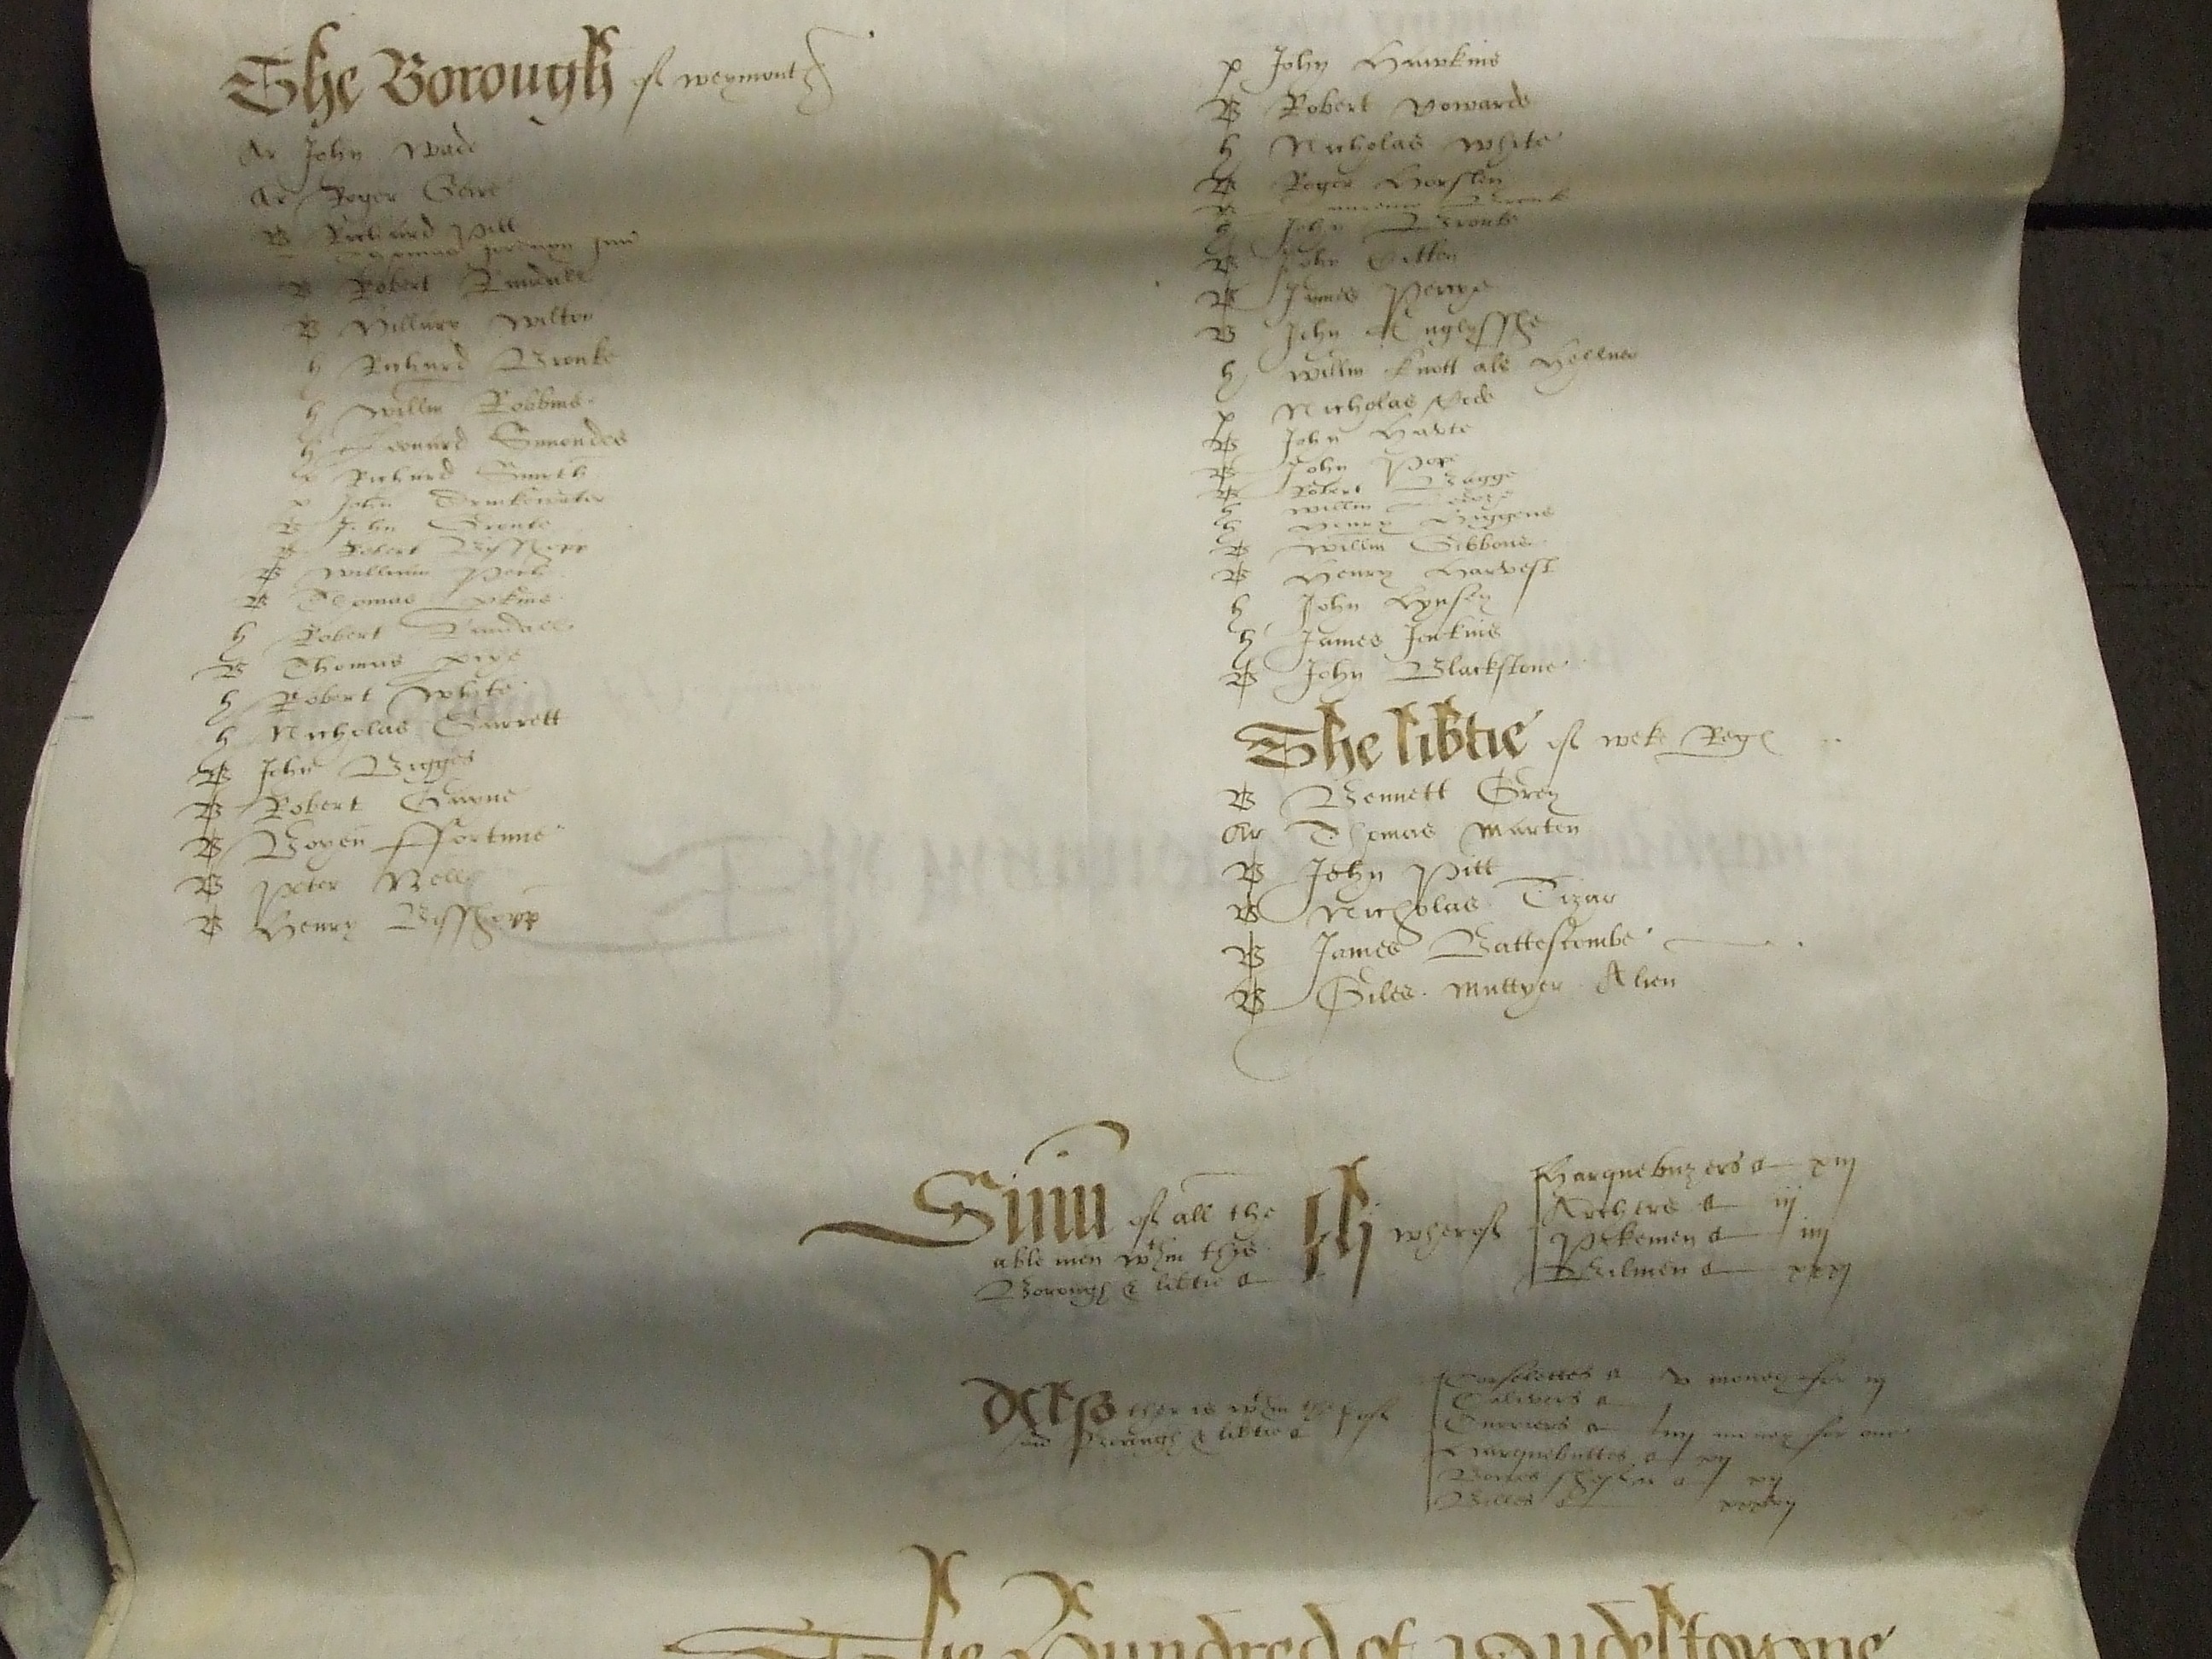 The Borough of weymouth
Ar John Wade
Ar Roger Geire
B Richard Pitt
Thomas Jordeyn Jun
B Robert Randall
B Hillary Wilton
h Richard Bronke
h Willm Robbins
h Leonard Simondes
p Richard Smeth
p John Drinkewater
B John Gronte
B Robert Bisshopp
B William
B Thomas
h Robert Randall
B Thomas pype
h Robert White
h Nicholas Garrett
B John Bigges
B Robert Gayne
B Boyen ffortune
B Peter Bell
B Henry Bisshopp
p John Hawkins
B Robert Howarde
h Nicholas White
B Roger Horsley
B Bronke
h John Bronke
B John Sitten
B James Perrye
B John Englysshe
h Willm Knott als Hellier
p Nicholas Pede
B John Harte
B John Pope
B Robert Bagge
h Willm
h Henry Higgens
B Willm Gibbons
B Henry Harvest
h John Lynsey
h James Jenkins
B John Blackstone
The libtie of weke Reg
B Bennett Grey
Ar Thomas Marten
B John Pitt
B Nicholas Tizar
B James Battescombe
B Giles Muttyer Alien
Sum of all the
able men wthin thys
Borough & libtie
lij wherof
Harquebuzers xiij
Archers iij
Pikemen iiij
Bilmen xxxj
ther is wthin the
said Borough & libtie
Corslettes v money for iij
Calivers
Curriers iiij money for one
Harquebuttes xij
Bowes sheffes xij
Billes
The Hundred of